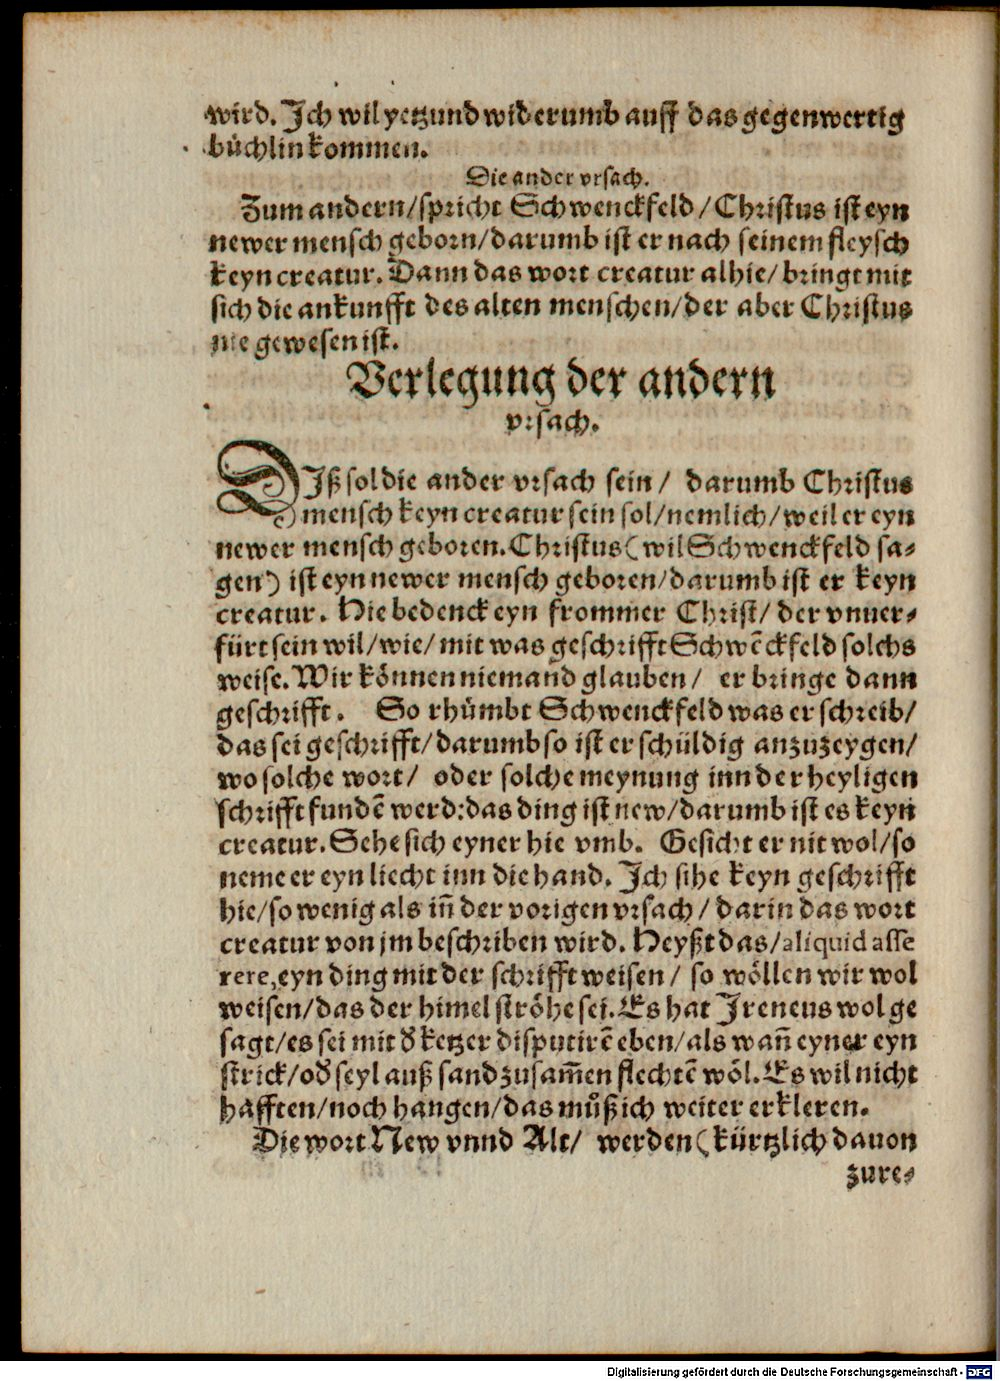 wird. Jch wil yetzund widerumb auff das gegenwertig
büchlin kommen.
Die ander vrsach.
Zum andern/spricht Schwenckfeld/Christus ist eyn
newer mensch geborn/darumb ist er nach seinem fleysch
keyn creatur. Dann das wort creatur alhie/bringt mit
sich die ankunfft des alten menschen/der aber Christus
nie gewesen ist.
Verlegung der andern
vrsach.
DJß sol die ander vrsach sein/ darumb Christus
mensch keyn creatur sein sol/nemlich/weil er eyn
newer mensch geboren. Christus (wil Schwenckfeld sa⸗
gen) ist eyn newer mensch geboren/darumb ist er keyn
creatur. Hie bedenck eyn frommer Christ/ der vnuer⸗
fürt sein wil/wie/mit was geschrifft Schwēckfeld solchs
weise. Wir können niemand glauben/ er bringe dann
geschrifft. So rhůmbt Schwenckfeld was er schreib/
das sei geschrifft/darumb so ist er schüldig anzuzeygen/
wo solche wort/ oder solche meynung inn der heyligen
schrifft fundē werd: das ding ist new/darumb ist es keyn
creatur. Sehe sich eyner hie vmb. Gesicht er nit wol/so
neme er eyn liecht inn die hand. Jch sihe keyn geschrifft
hie/so wenig als iñ der vorigen vrsach/darin das wort
creatur von jm beschriben wird. Heyßt das/aliquid asse
rere, eyn ding mit der schrifft weisen/ so wöllen wir wol
weisen/das der himel ströhe sei. Es hat Jreneus wol ge
sagt/es sei mit d̕ ketzer disputirē eben/als wañ eyner eyn
strick/od̕ seyl auß sand zusam̄en flechtē wöl. Es wil nicht
hafften/noch hangen/das můß ich weiter erkleren.
Die wort New vnnd Alt/ werden (kürtzlich dauon
zure⸗
Digitalisierung gefördert durch die Deutsche Forschungsgemeinschaft - DFG